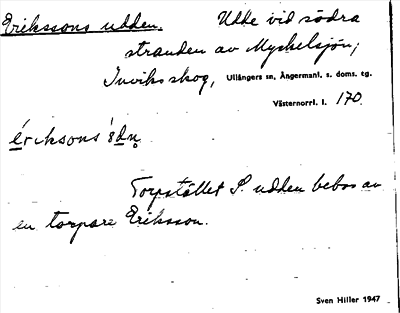 Erikssons udden. Udde vid södra
stranden av Myckelsjön,
Inviks skog, Ullångers sn, Ångermanl. s. doms. tg.
Västernorrl. l. 170.
ériksons`
Torpstället S. udden bebos av
en torpare Eriksson.
Sven Hiller 1947